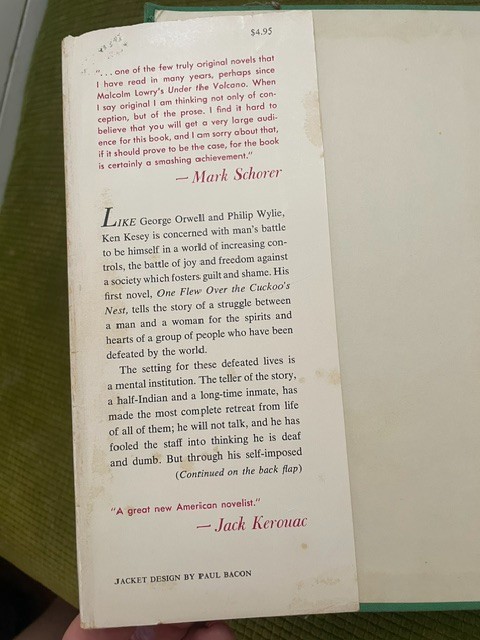 $4.95
"... one of the few truly original novels that
I have read in many years, perhaps since
Malcolm Lowry's Under the Volcano. When
I say original I am thinking not only of con-
ception, but of the prose. I find it hard to
believe that you will get a very large audi-
ence for this book, and I am sorry about that,
if it should prove to be the case, for the book
is certainly a smashing achievement."
— Mark Schorer
LIKE George Orwell and Philip Wylie,
Ken Kesey is concerned with man's battle
to be himself in a world of increasing con-
trols, the battle of joy and freedom against
a society which fosters guilt and shame. His
first novel, One Flew Over the Cuckoo's
Nest, tells the story of a struggle between
a man and a woman for the spirits and
hearts of a group of people who have been
defeated by the world.
The setting for these defeated lives is
a mental institution. The teller of the story,
a half-Indian and a long-time inmate, has
made the most complete retreat from life
of all of them; he will not talk, and he has
fooled the staff into thinking he is deaf
and dumb. But through his self-imposed
(Continued on the back flap)
"A great new American novelist."
— Jack Kerouac
JACKET DESIGN BY PAUL BACON